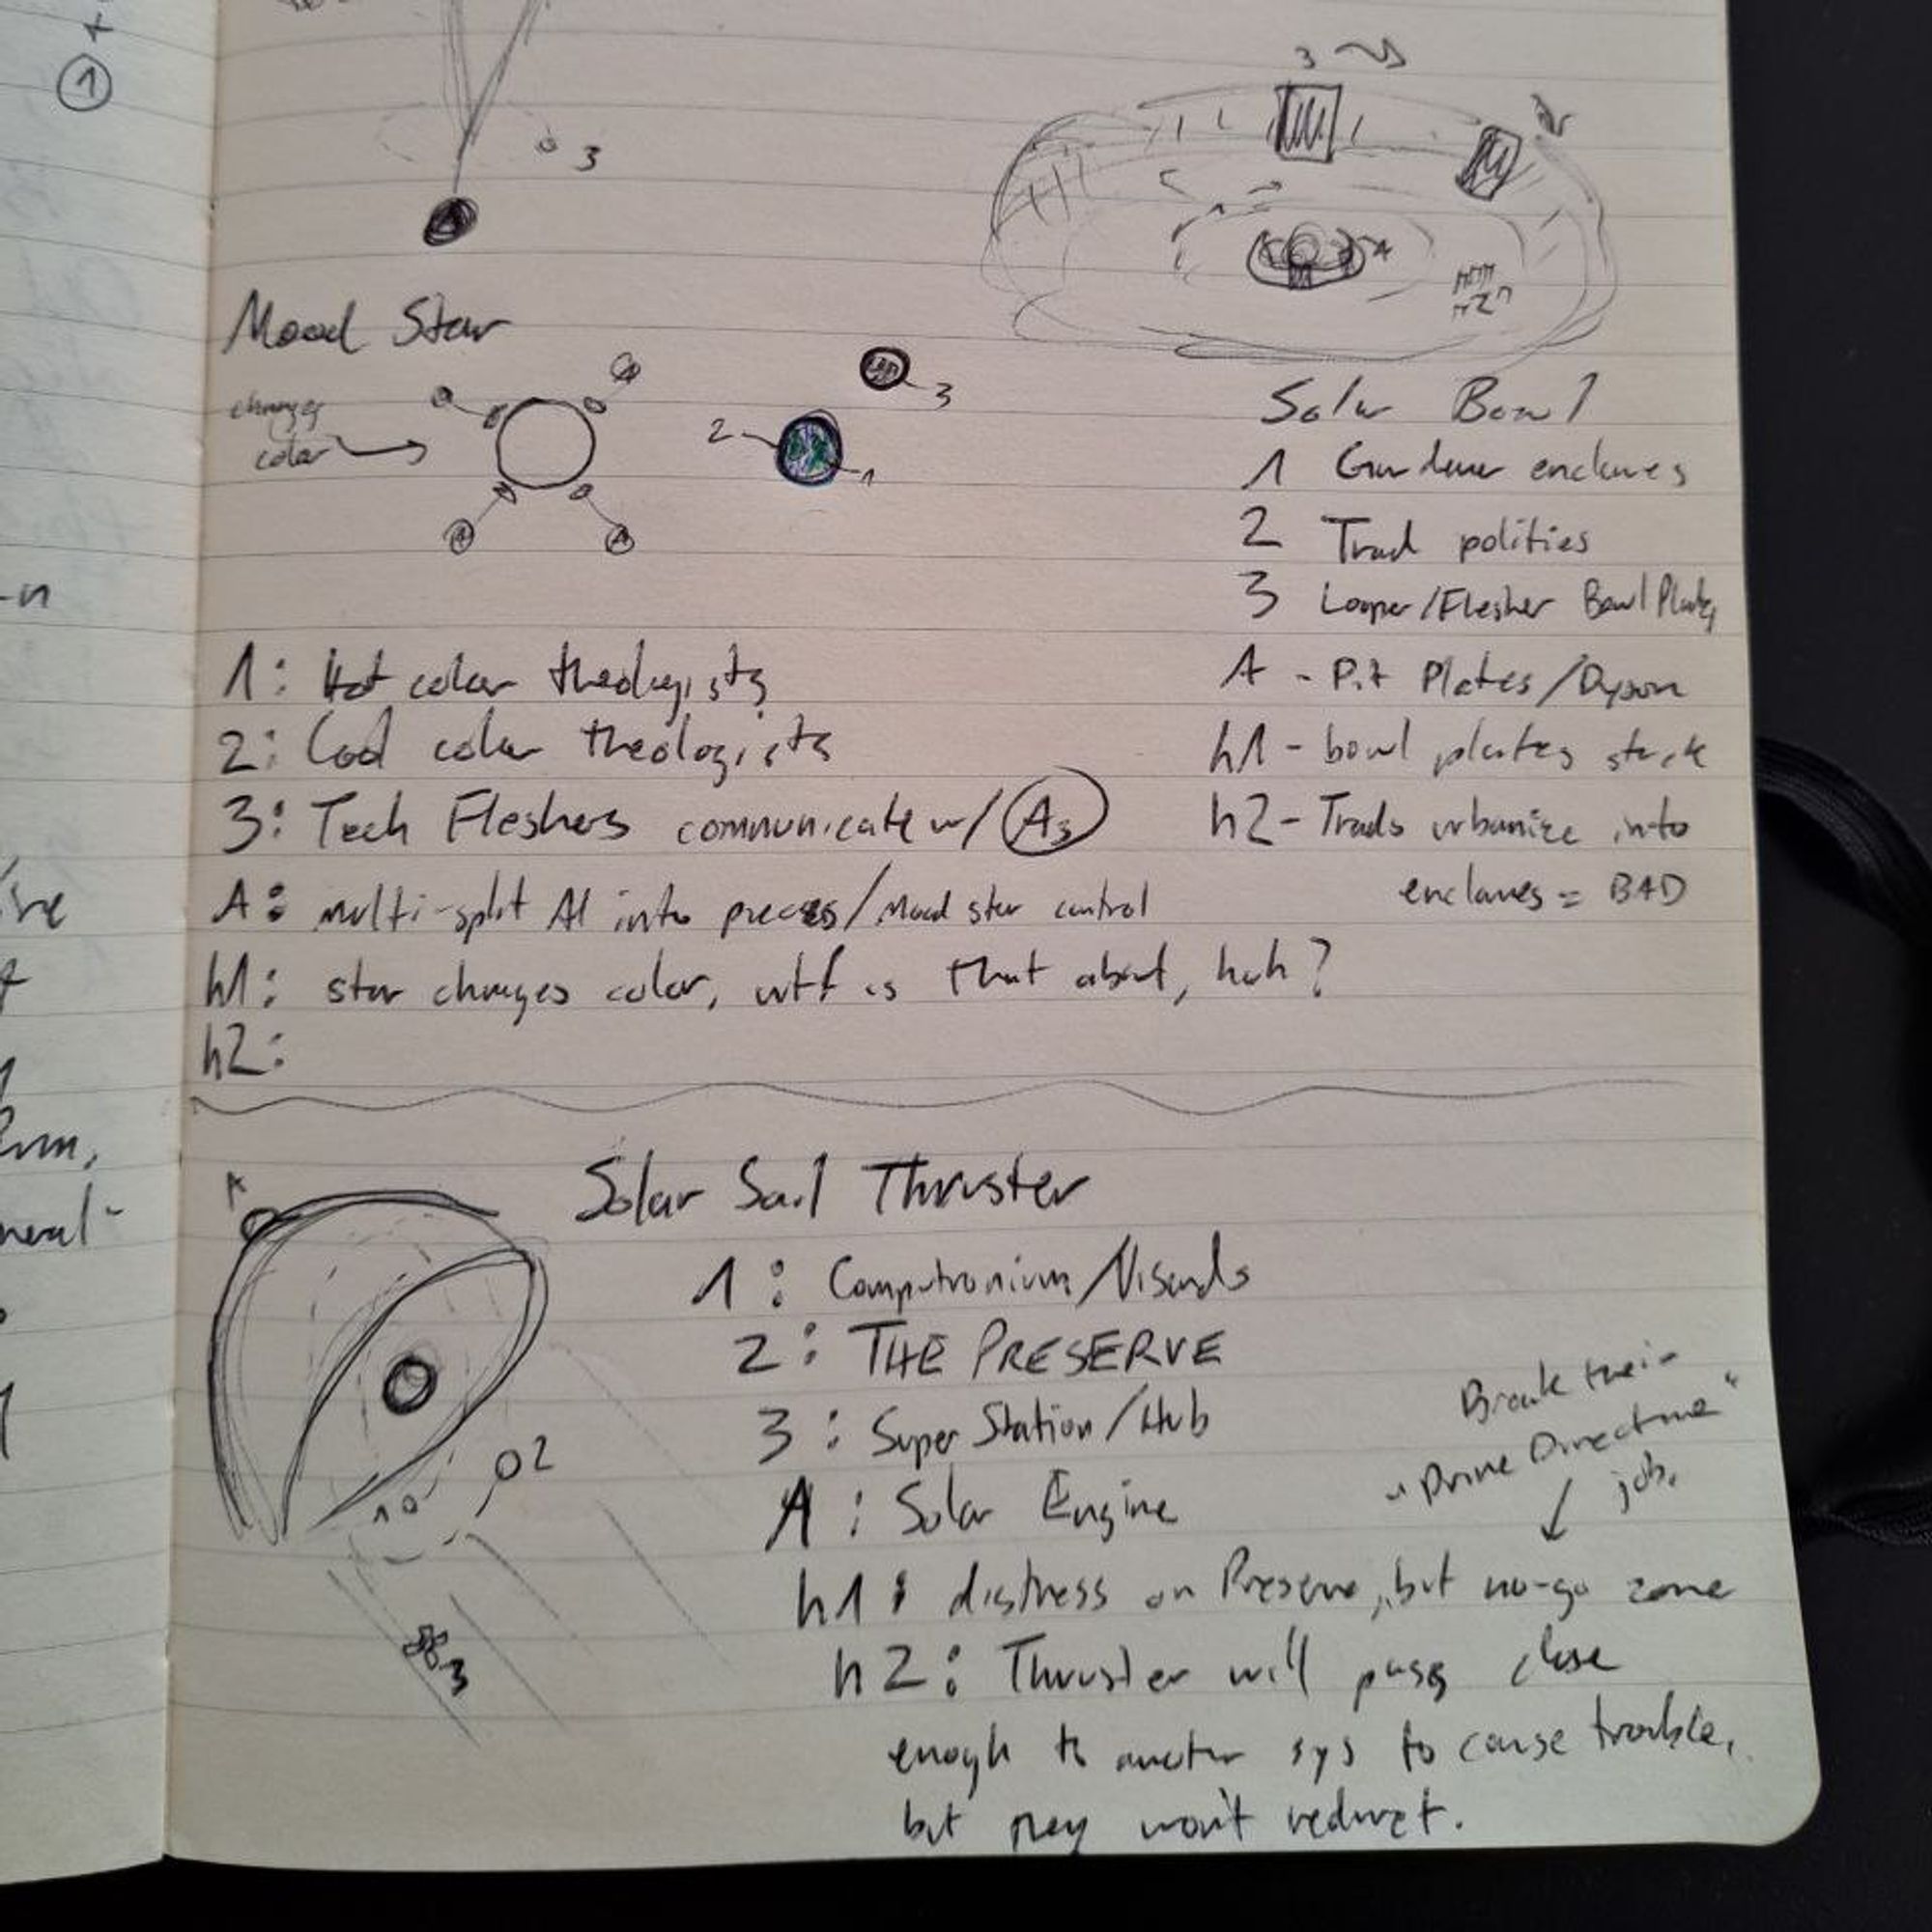 1
3
Mood Star
changes
color
3
2
1
A
A
1: Hot color theologists
2: Cool color theologists
3: Tech Fleshers communicate w/ As
A: multi-split AI into pieces/Mood star control
h1: star changes color, wtf is that about, huh?
h2:
3
A
Solar Bowl
1 Gardener enclaves
2 Trad polities
3 Looper/Flesher Bowl Plates
A - Pit Plates/Dyson
h1 - bowl plates stuck
h2 - Trads urbanize into
enclaves = BAD
Solar Sail Thruster
A
1
2
3
1: Computronium/
2: THE PRESERVE
3: Super Station/Hub
A: Solar Engine
Break their
"Prime Directive"
job.
h1: distress on Preserve, but no-go zone
h2: Thruster will pass close
enogh to another sys to cause trouble,
but they won't redirect.